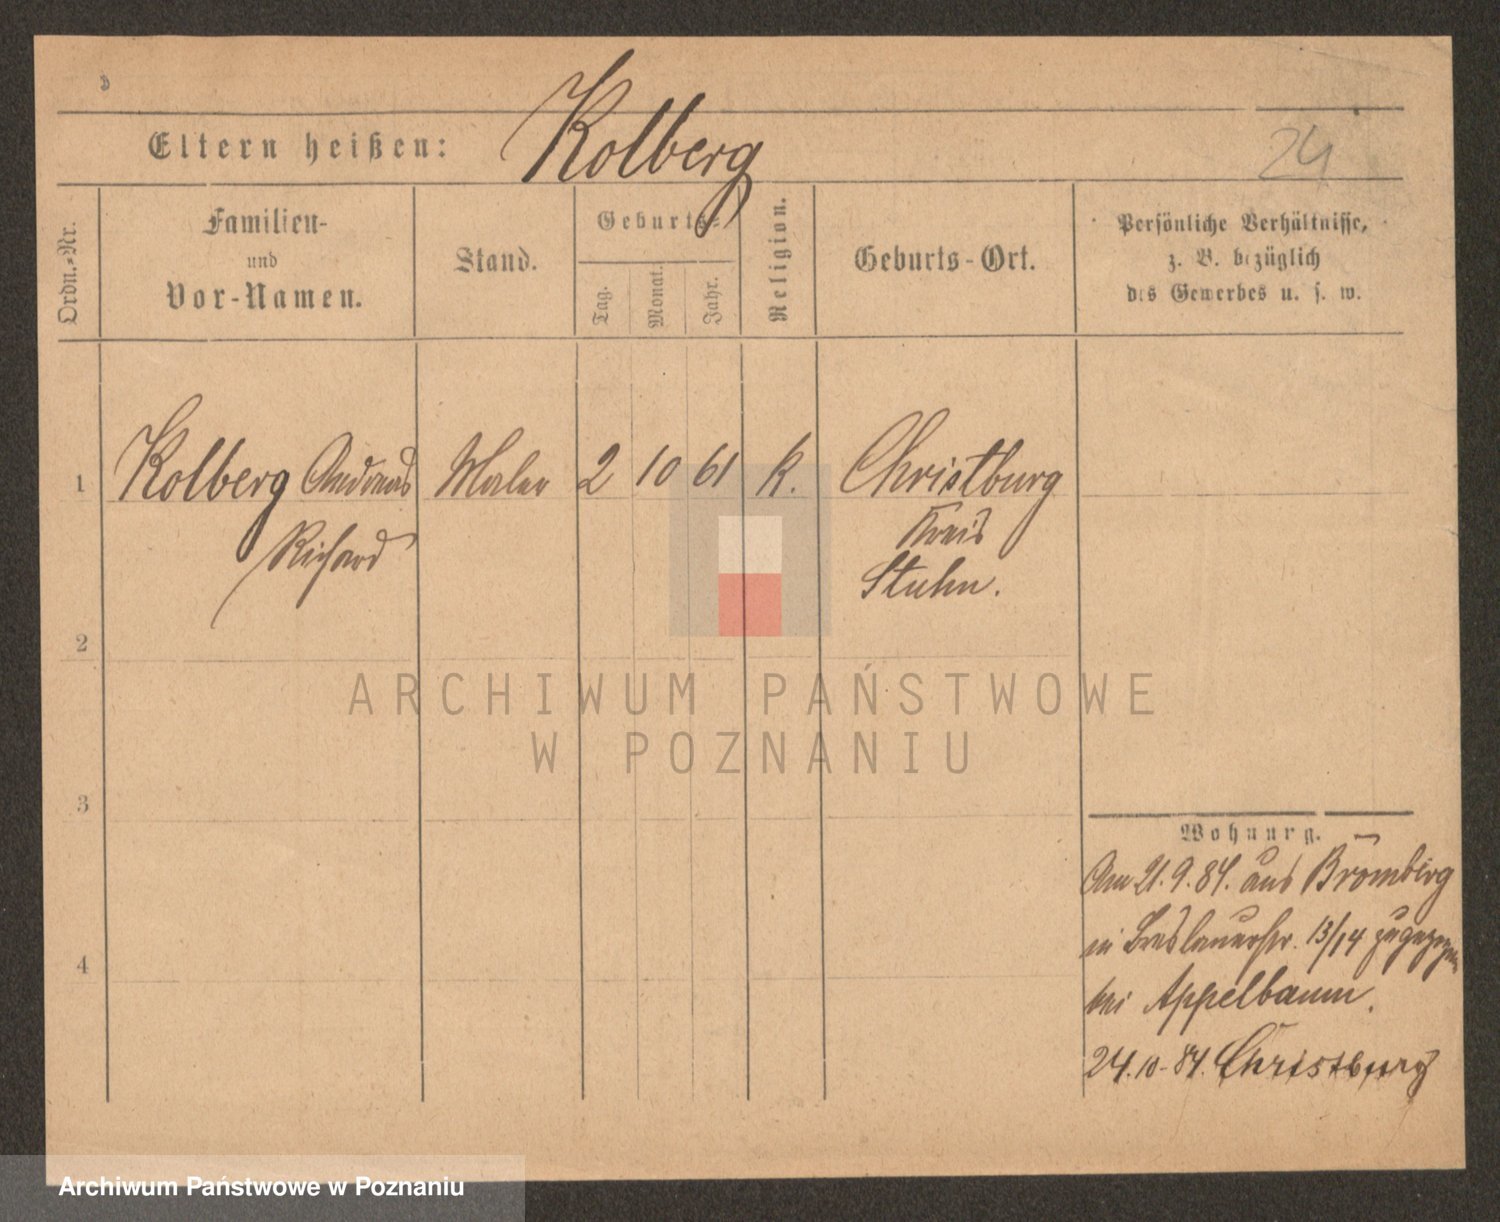 Eltern heißen: Kolberg
24
Ordn.-Nr.
Familien-
und
Vor-Namen.
Stand.
Geburts-
Tag.
Monat.
Jahr.
Religion.
Geburts-Ort.
Persönliche Verhältnisse,
z. B. bezüglich
des Gewerbes u. s. w.
1 Kolberg Andreas Maler 2 10 61 k. Christburg
Richard
Kreis
Stuhm.
2
3
4
Wohnung.
Am 21.9.84. aus Bromberg
in Breslauerstr. 13/14 zugezogen
bei Appelbaum.
24.10.84. Christburg
ARCHIWUM PAŃSTWOWE
W POZNANIU
Archiwum Państwowe w Poznaniu